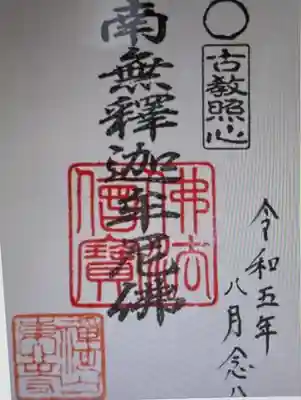 古教照心
令和五年
八月念八
南無釋迦牟尼佛
佛法
僧寶